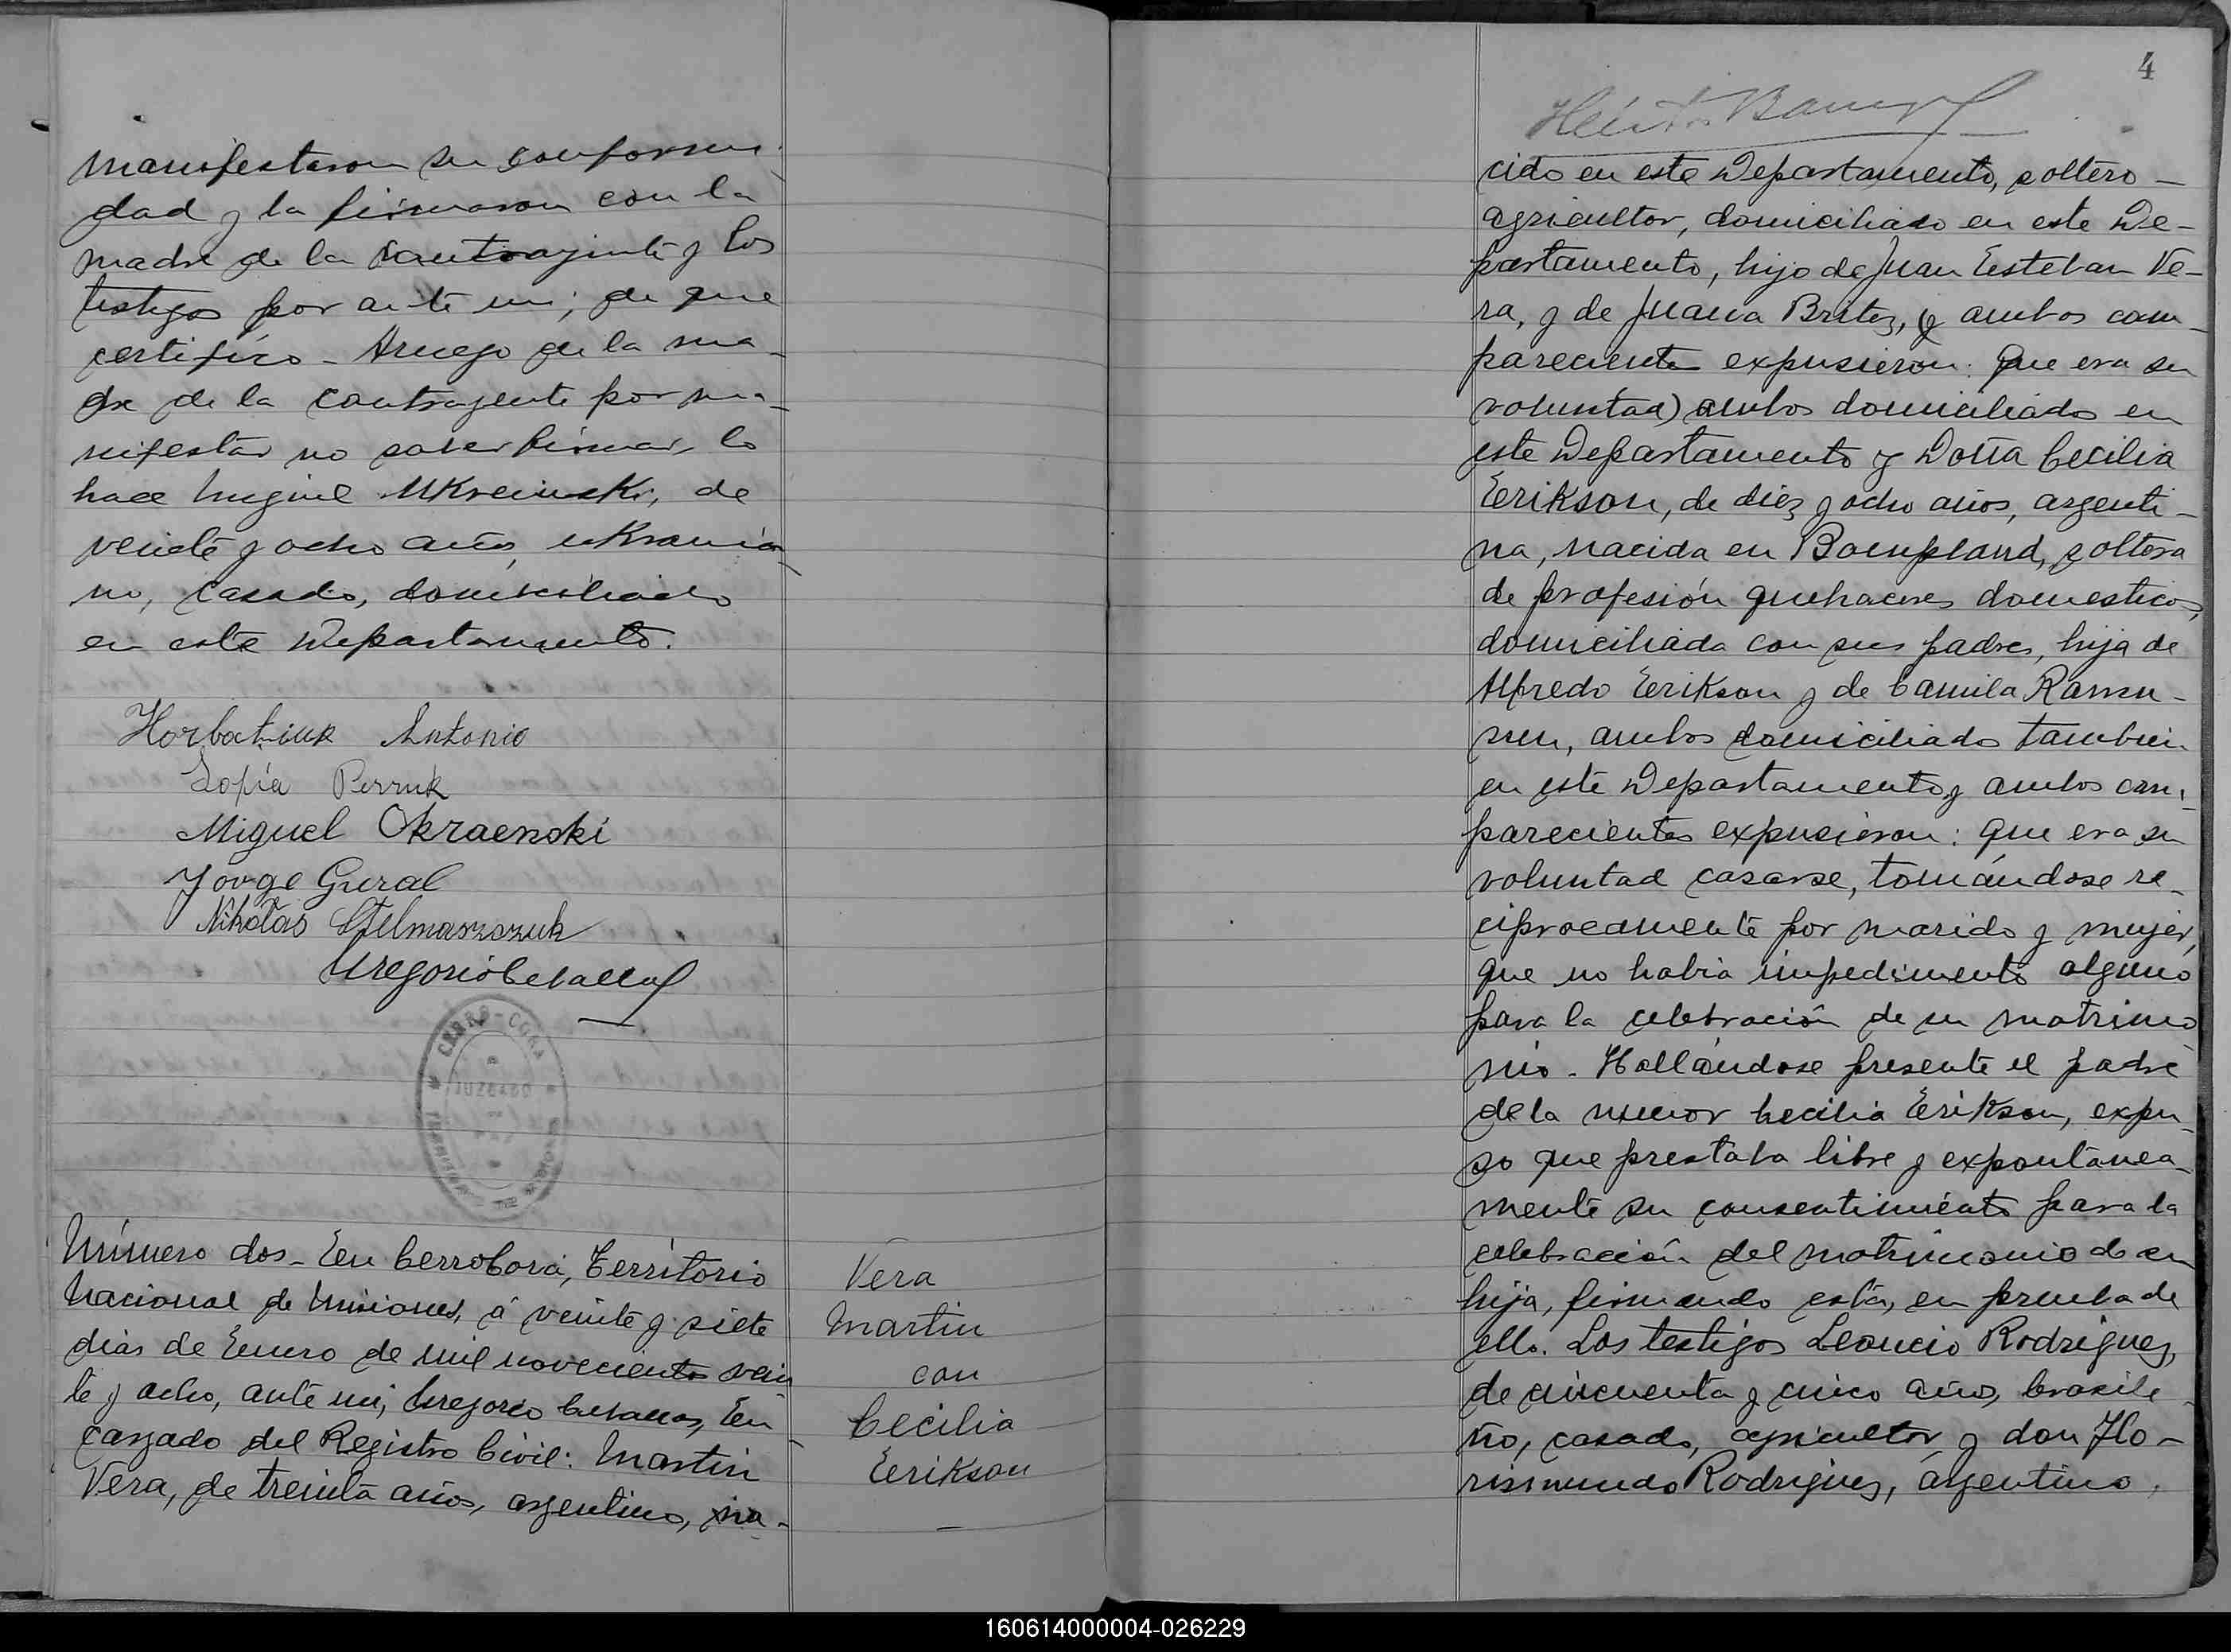 manifestaron su conformi
dad y la firmaron con la
madre de la contrayente y los
testigos por ante mi; de que
certifico - Aruego de la ma-
dre de la contrayente por ma-
nifestar no saber firmar, lo
hace Miguel Ukrainski, de
veinte y ocho años, ukrania
no, casado, domiciliado
en este Departamento.
Horbatiuk Antonio
Sofia Perruk
Miguel Okraenski
Jorge Gural
Nikolas Stelmaszczuk
Gregorio Cevallos
CERRO-CORA
JUZGADO
Número dos - En Cerro Corá, Territorio
Nacional de Misiones, á veinte y siete
dias de Enero de mil novecientos vein
te y ocho, ante mi, Gregorio Cevallos, En-
cargado del Registro Civil: Martin
Vera, de treinta años, argentino, na-
Vera
Martin
con
Cecilia
Eerikson
4
Héctor
cido en este Departamento, soltero -
agricultor, domiciliado en este De-
partamento, hijo de Juan Esteban Ve-
ra, y de Juana Britez, (y ambos com-
pareciente expusieron: que era su
voluntad) ambos domiciliados en
este Departamento y Doña Cecilia
Eerikson, de diez y ocho años, argenti-
na, nacida en Bompland, soltera
de profesión quehaceres domesticos,
domiciliada con sus padres, hija de
Alfredo Eerikson y de Camila Rasmu-
sen, ambos domiciliados tambien
en este Departamento y ambos com-
parecientes expusieron: que era su
voluntad casarse, tomándose re-
ciprocamente por marido y mujer,
que no habia impedimento alguno
para la celebración de su matrimo
nio. Hallándose presente el padre
de la menor Cecilia Eerikson, expu-
so que prestaba libre y expontánea-
mente su consentimiento para la
celebración del matrimonio de su
hija, firmando esta, en prueba de
ello. Los testigos Leoncio Rodriguez,
de cincuenta y cinco años, brasile
ño, casado, agricultor y don Flo-
rismundo Rodriguez, argentino,
160614000004-026229